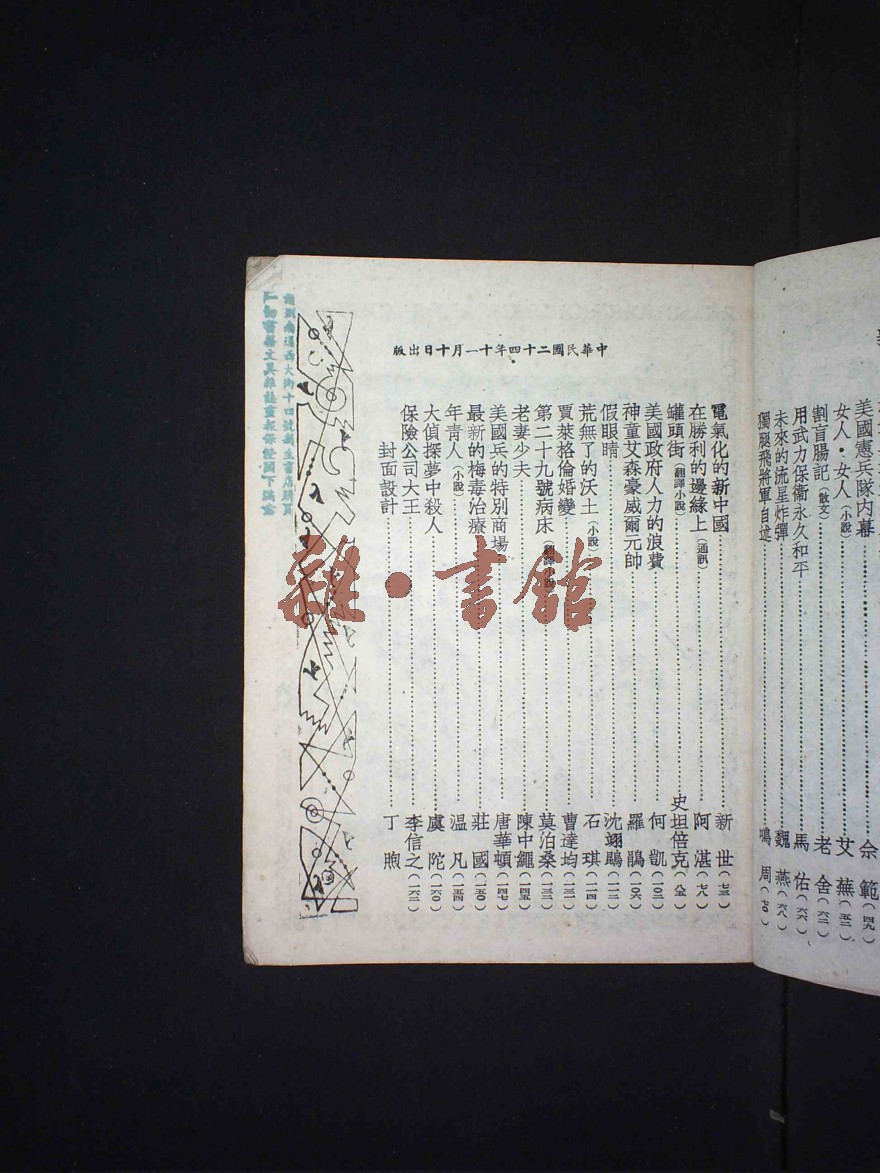 美國憲兵隊內幕……余範(四九)
女人·女人(小說)……艾蕪(五二)
割盲腸記(散文)……老舍(六二)
用武力保衛永久和平……馬佑(六六)
未來的流星炸彈……魏燕(六八)
獨腿飛將軍自述……鳴周(七〇)
中華民國二十四年十一月十日出版
電氣化的新中國……新世(七三)
在勝利的邊緣上(通訊)……阿湛(七八)
罐頭街(翻譯小說)……史坦倍克(八九)
美國政府人力的浪費……何凱(一〇三)
神童艾森豪威爾元帥……羅鵑(一〇六)
假眼睛……沈翊鵾(一一二)
荒無了的沃土(小說)……石琪(一一四)
賈萊格倫婚變……曹達均(一三一)
第二十九號病床(翻譯小說)……莫泊桑(一三三)
老妻少夫……陳中繩(一四五)
美國兵的特別商場……唐華頓(一四七)
最新的梅毒治療……莊國(一五〇)
年青人(小說)……温凡(一五四)
大偵探夢中殺人……虞陀(一六〇)
保險公司大王……李信之(一六二)
封面設計……丁煦
請到南通西大街十四號新生書店購買
一切書籍文具雜誌畫報保證閣下滿意
雜·書館